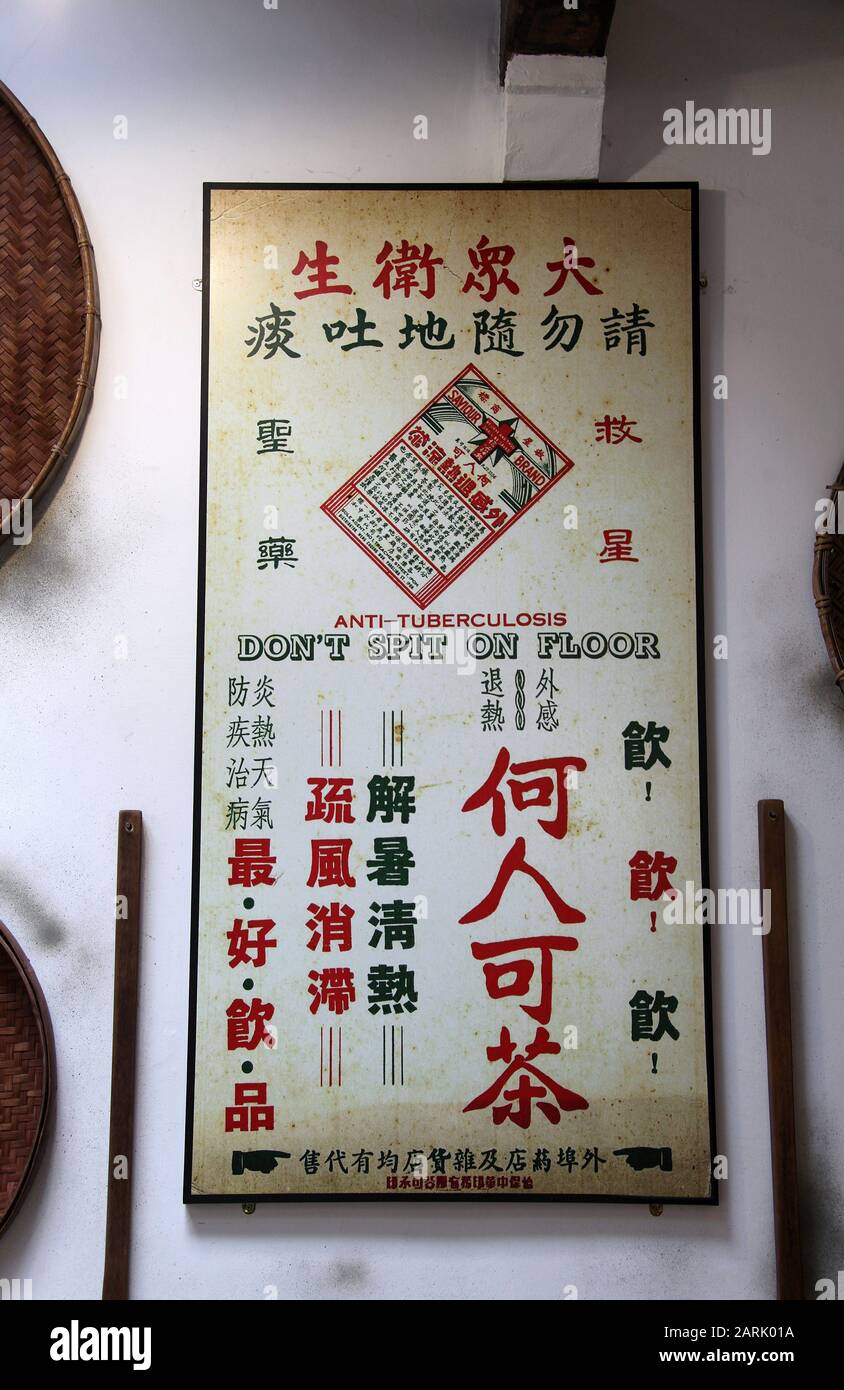 大眾衛生
請勿隨地吐痰
救星
聖藥
商標
救星
SAVIOUR BRAND
何人可
外感退熱涼茶
ANTI-TUBERCULOSIS
DON'T SPIT ON FLOOR
飲! 飲! 飲!
外感
退熱
何人可茶
解暑清熱
疏風消滯
炎熱天氣
防疾治病
最·好·飲·品
外埠葯店及雜貨店均有代售
alamy
Image ID: 2ARK01A
www.alamy.com